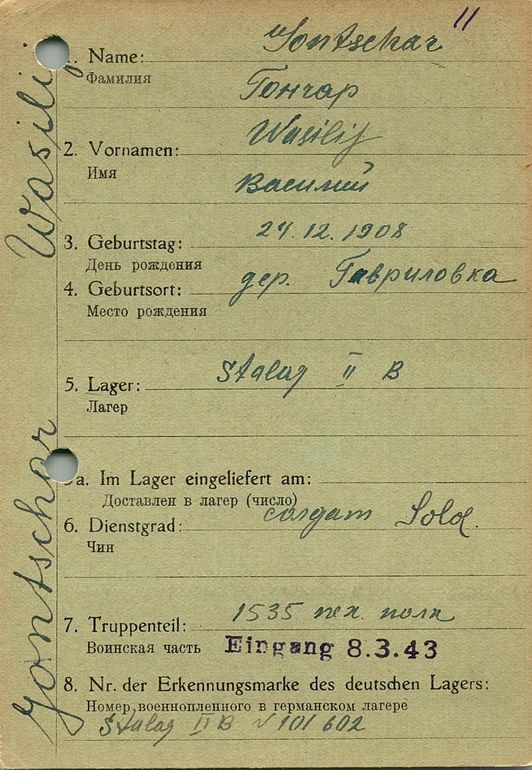 11
1. Name: Gontschar
Фамилия Гончар
2. Vornamen: Wasilij
Имя Василий
3. Geburtstag: 24.12.1908
День рождения
4. Geburtsort: дер. Гавриловка
Место рождения
5. Lager: Stalag II B
Лагер
5a. Im Lager eingeliefert am:
Доставлен в лагер (число)
6. Dienstgrad: солдат Sold.
Чин
7. Truppenteil: 1535 пех. полк
Воинская часть Eingang 8.3.43
8. Nr. der Erkennungsmarke des deutschen Lagers:
Номер военнопленного в германском лагере
Stalag II B N 101602
Gontschar Wasilij